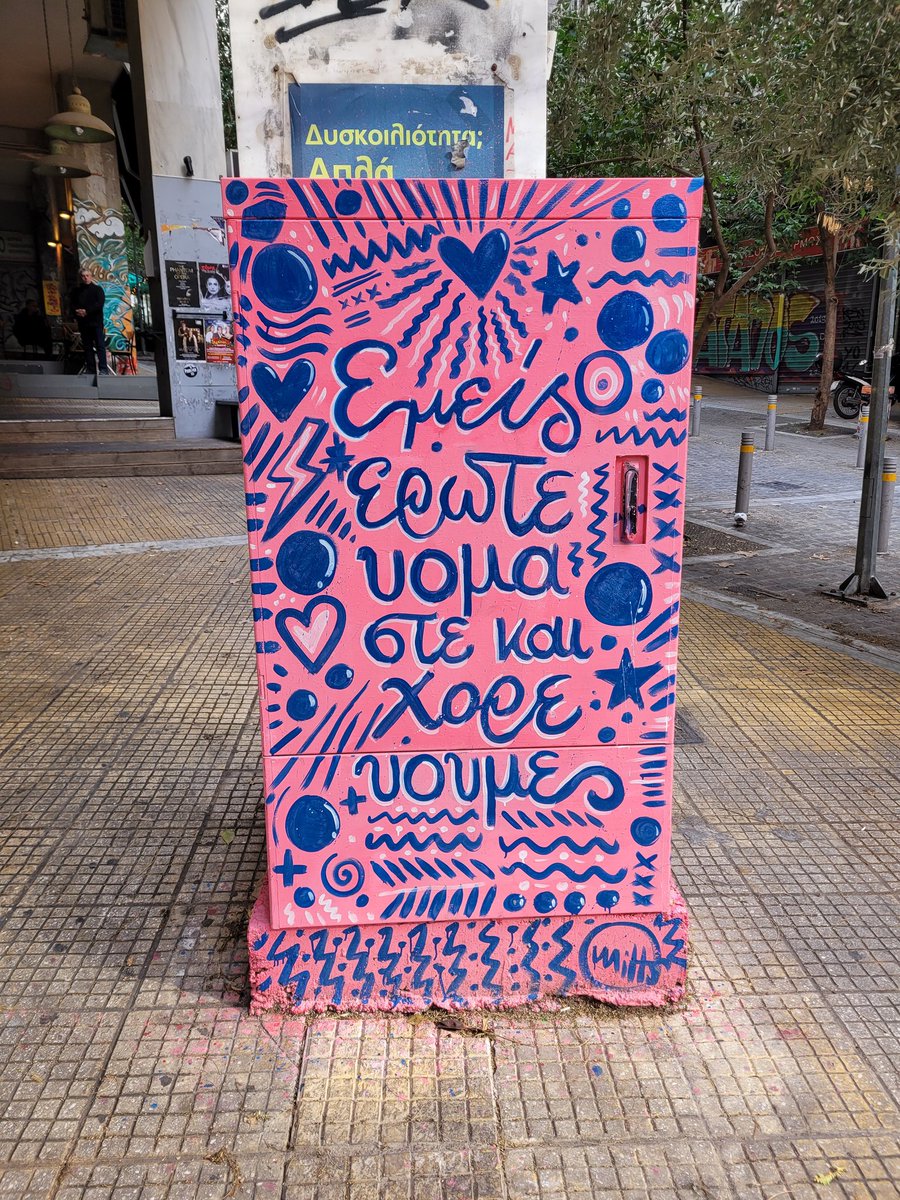 Δυσκοιλιότητα;
Απλά
Εμείς
ερωτε
υομα
στε και
χορε
υουμε
mitts